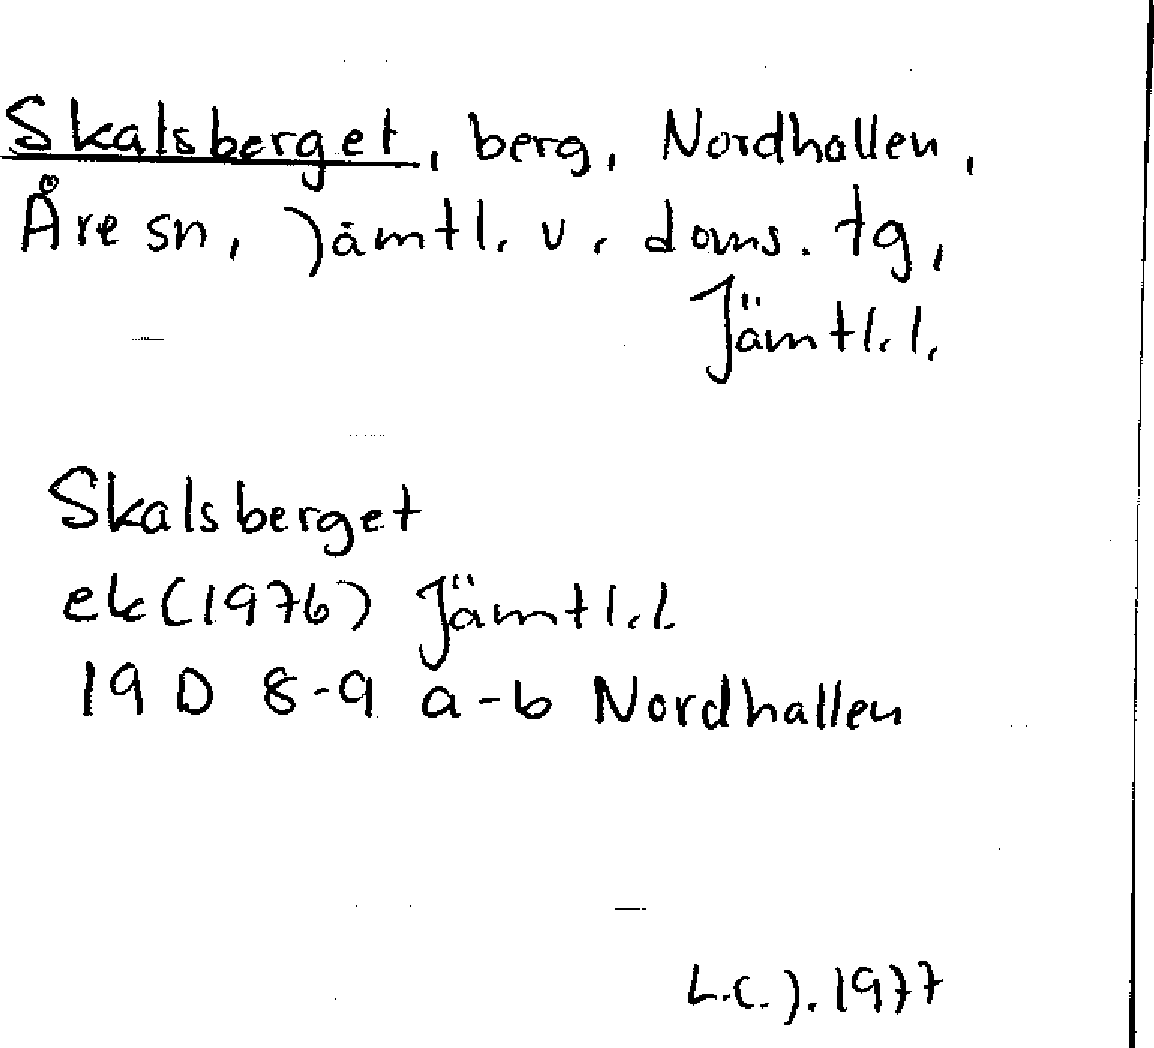 Skalsberget, berg, Nordhallen,
Åre sn, Jämtl. v. doms. tg,
Jämtl. l.
Skalsberget
ek (1976) Jämtl. l
19 D 8-9 a-b Nordhallen
L.C.J. 1977